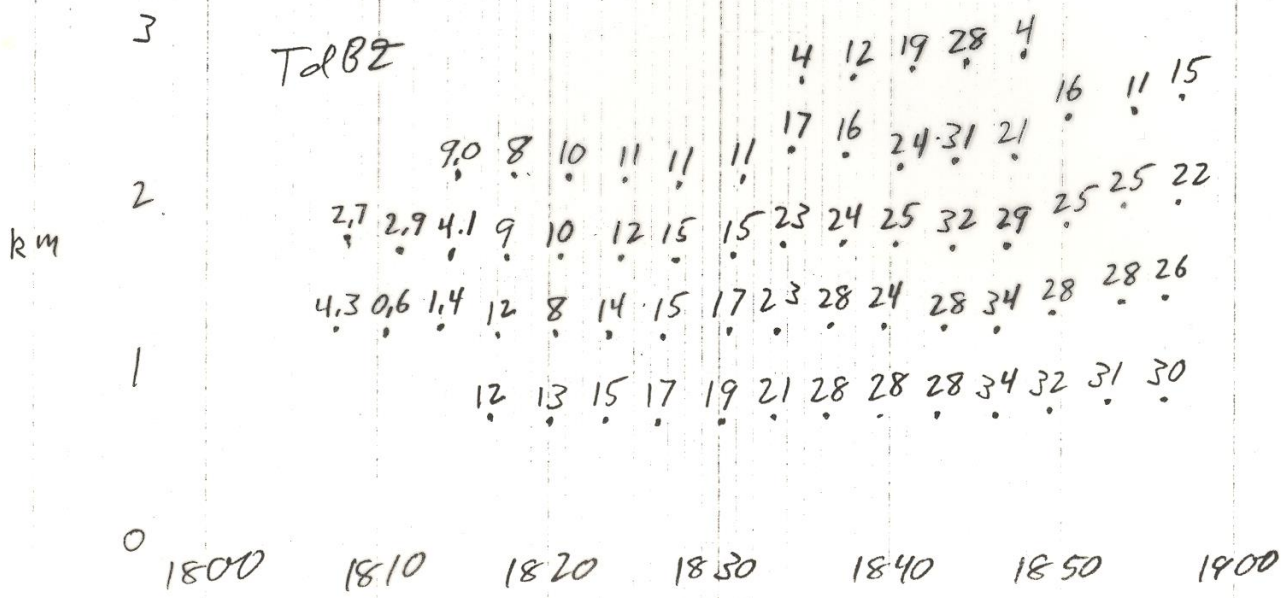 3 TdBZ 4 12 19 28 4
16 11 15
9,0 8 10 11 11 11 17 16 24 31 21
2
km
2,7 2,9 4.1 9 10 12 15 15 23 24 25 32 29 25 25 22
4,3 0,6 1,4 12 8 14 15 17 23 28 24 28 34 28 28 26
1
12 13 15 17 19 21 28 28 28 34 32 31 30
0
1800 1810 1820 1830 1840 1850 1900